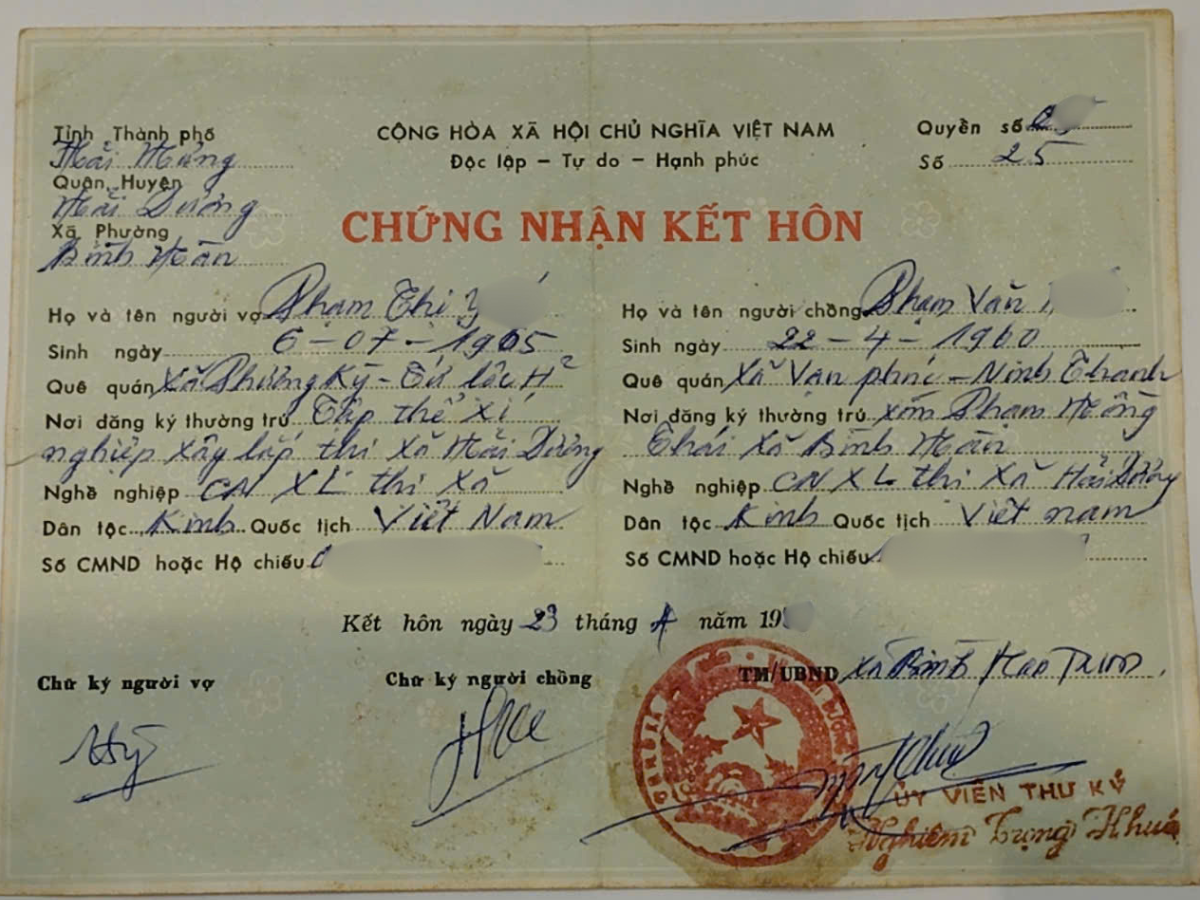 CỘNG HÒA XÃ HỘI CHỦ NGHĨA VIỆT NAM
Độc lập - Tự do - Hạnh phúc
Tỉnh Thành phố
Hải Hưng
Quận, Huyện
Hải Dương
Xã Phường
Bình Hàn
Quyển số
Số 25
CHỨNG NHẬN KẾT HÔN
Họ và tên người vợ Phạm Thị
Sinh ngày 6-07-1965
Quê quán Xã Phượng Kỳ - Tứ lộc H²
Nơi đăng ký thường trú Tập thể Xí
nghiệp Xây lắp thị Xã Hải Dương
Nghề nghiệp CN XL thị Xã
Dân tộc Kinh Quốc tịch Việt Nam
Số CMND hoặc Hộ chiếu
Họ và tên người chồng Phạm Văn
Sinh ngày 22-4-1960
Quê quán Xã Vạn phúc - Ninh Thanh
Nơi đăng ký thường trú xóm Phạm Hồng
Thái Xã Bình Hàn
Nghề nghiệp CN XL thị Xã Hải Dương
Dân tộc Kinh Quốc tịch Việt nam
Số CMND hoặc Hộ chiếu
Kết hôn ngày 23 tháng 4 năm 19
Chữ ký người vợ
Chữ ký người chồng
TM/UBND Xã Bình Hàn
ỦY VIÊN THƯ KÝ
Nghiêm Trọng Khuê